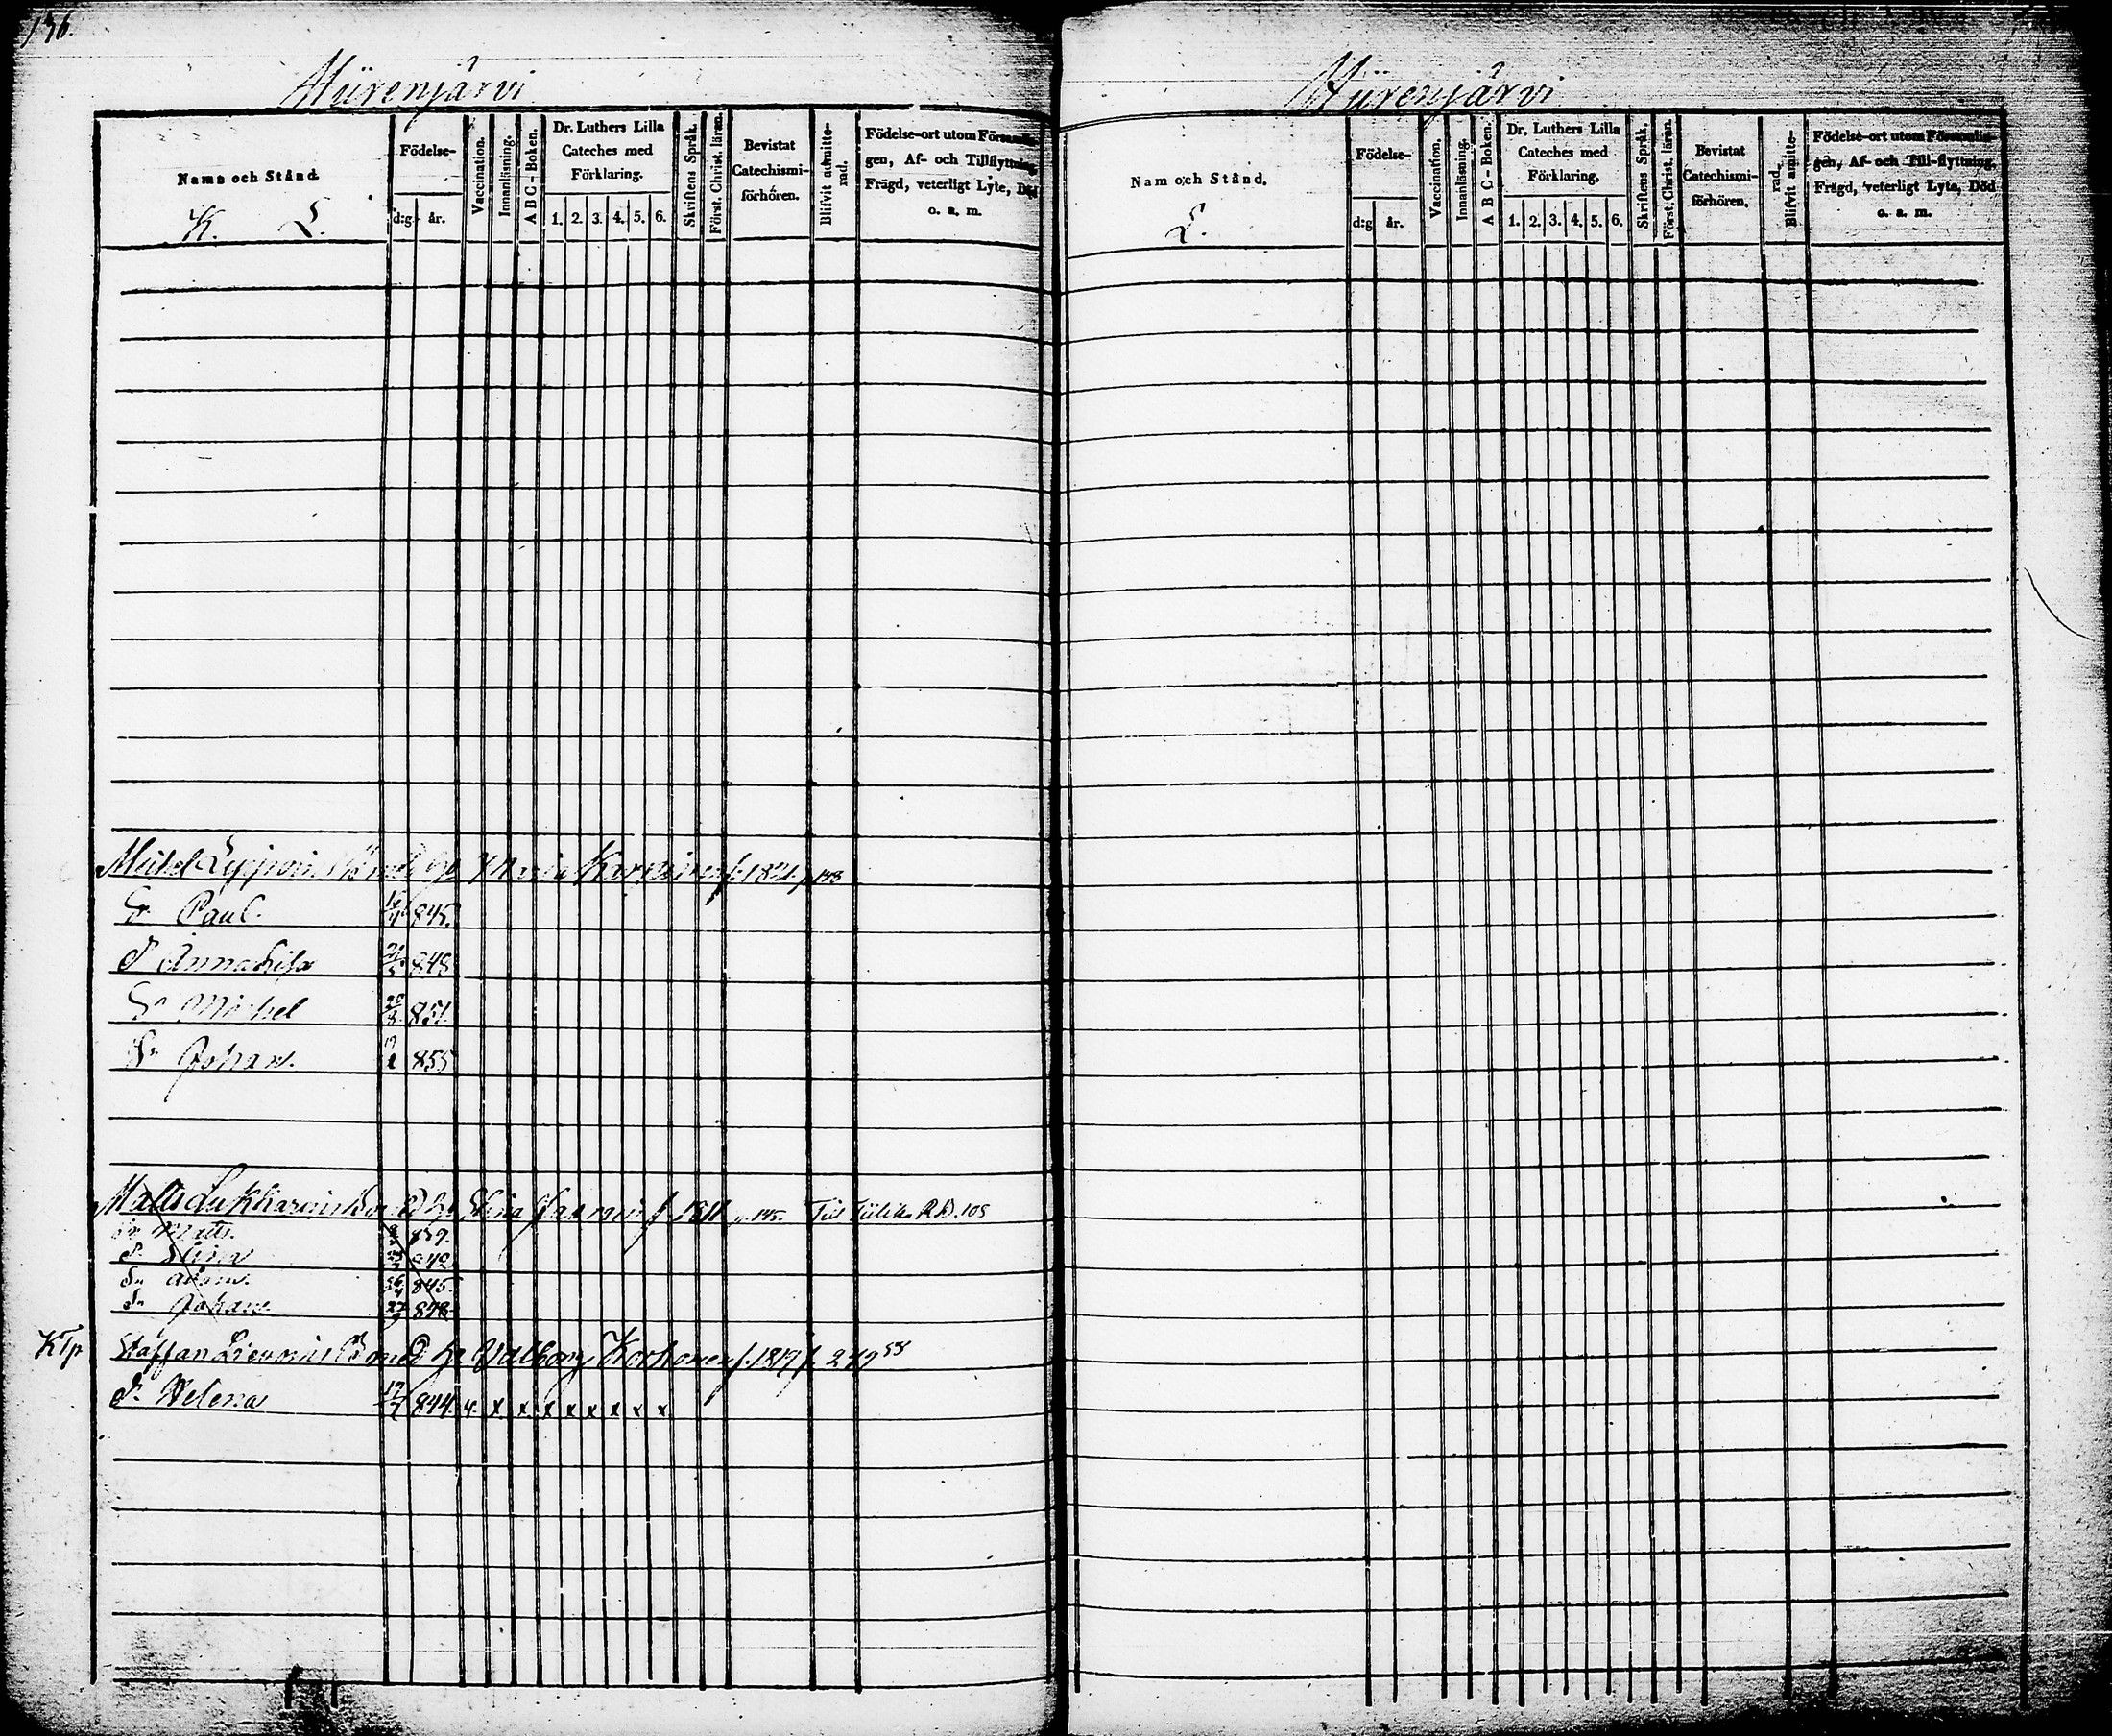 176.
Hiirenjärvi
Namn och Stånd.
K. L.
Födelse-
d:g år.
Vaccination.
Innanläsning.
A B C - Boken.
Dr. Luthers Lilla Cateches med Förklaring.
1. 2. 3. 4. 5. 6.
Skriftens Språk.
Först. Christ. läran.
Bevistat Catechismi-förhören.
Blifvit admitte-rad.
Födelse-ort utom Församlin-
gen, Af- och Tillflyttning,
Frägd, veterligt Lyte, Död
o. s. m.
Michel Leppoin Bond Hu Maria Karppinen f. 1821. p. 148
Sn Paul. 845.
Dr Anna Lisa 21/5 848
Sn Michel 20/8 851
Sn Johan. 855
Matts Lukkarin Bond Hu Stina f. 1811 p. 145. Till R.D. 105
Sn Matts. 839.
Dr Stina 840
Sn Adam. 845.
Sn Johan 848
KTp Staffan Bond Hu Valborg Korhonen f. 1819 p. 279
Dr Helena 844 x x x x x x x x x
Hiirenjärvi
Nam och Stånd.
L.
Födelse-
d:g år.
Vaccination.
Innanläsning.
A B C - Boken.
Dr. Luthers Lilla Cateches med Förklaring.
1. 2. 3. 4. 5. 6.
Skriftens Språk.
Först. Christ. läran.
Bevistat Catechismi-förhören.
Blifvit amitte-rad.
Födelse-ort utom Församlin-
gen, Af- och Till-flyttning,
Frägd, veterligt Lyte, Död
o. a. m.